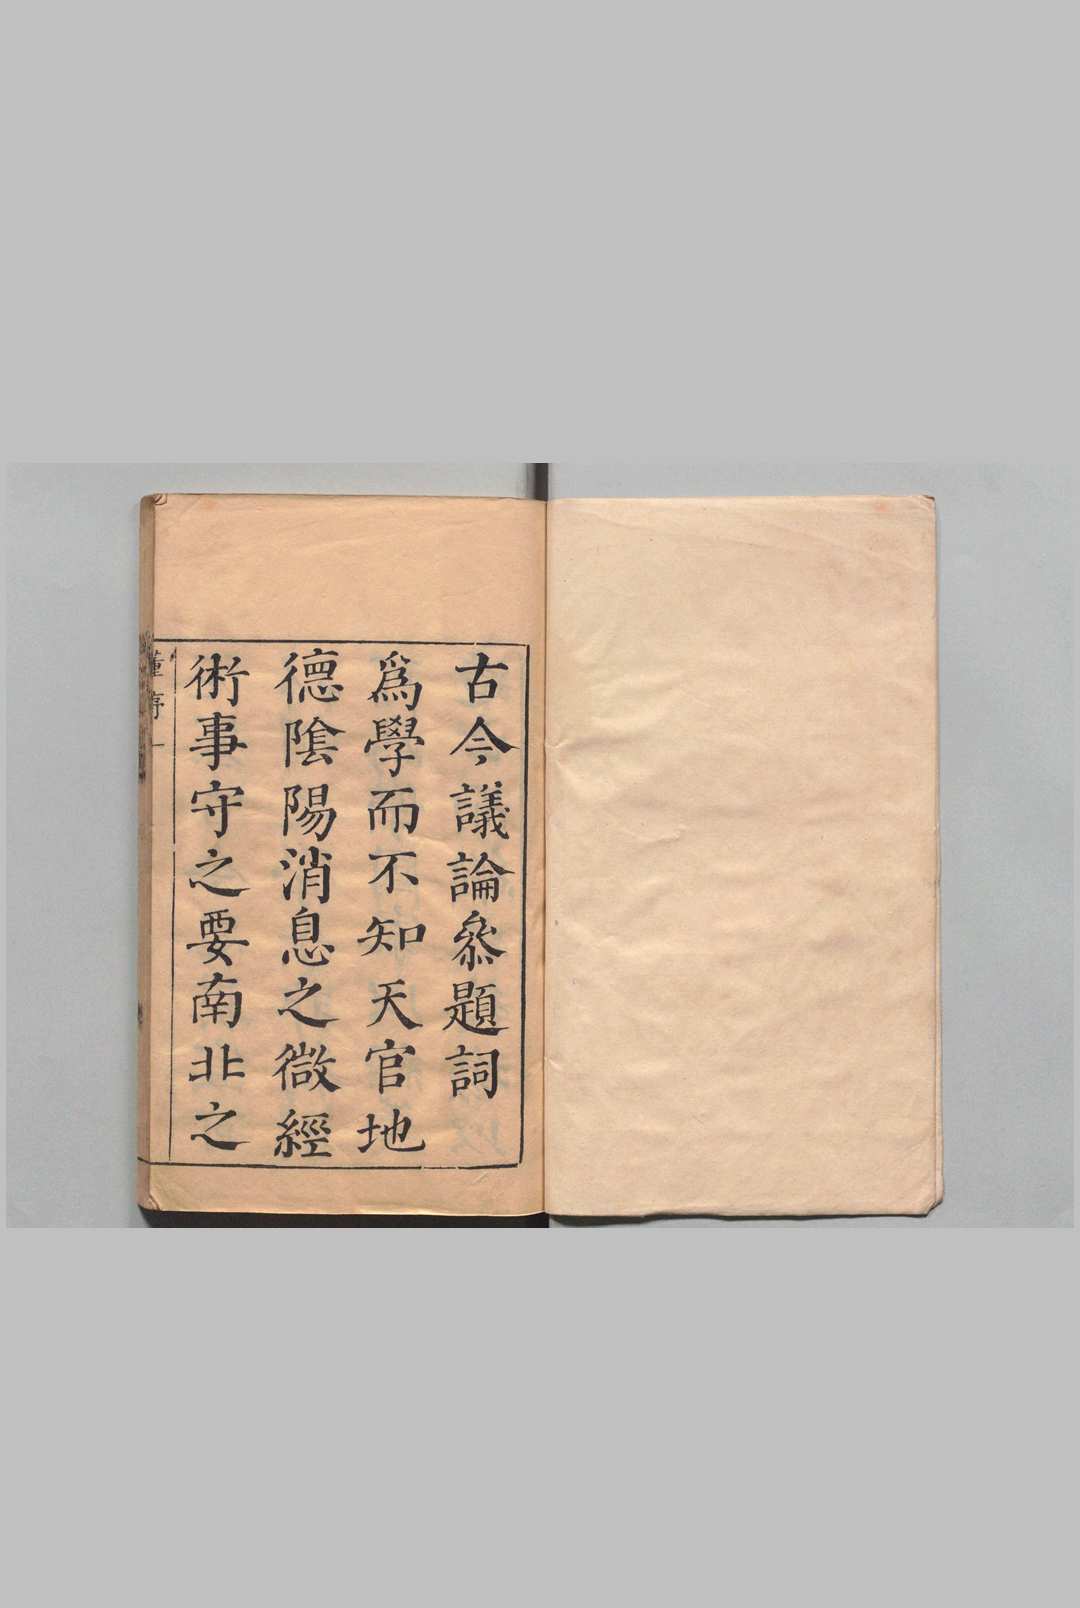 古今議論叅題詞
爲學而不知天官地
德陰陽消息之微經
術事守之要南北之
董序
一